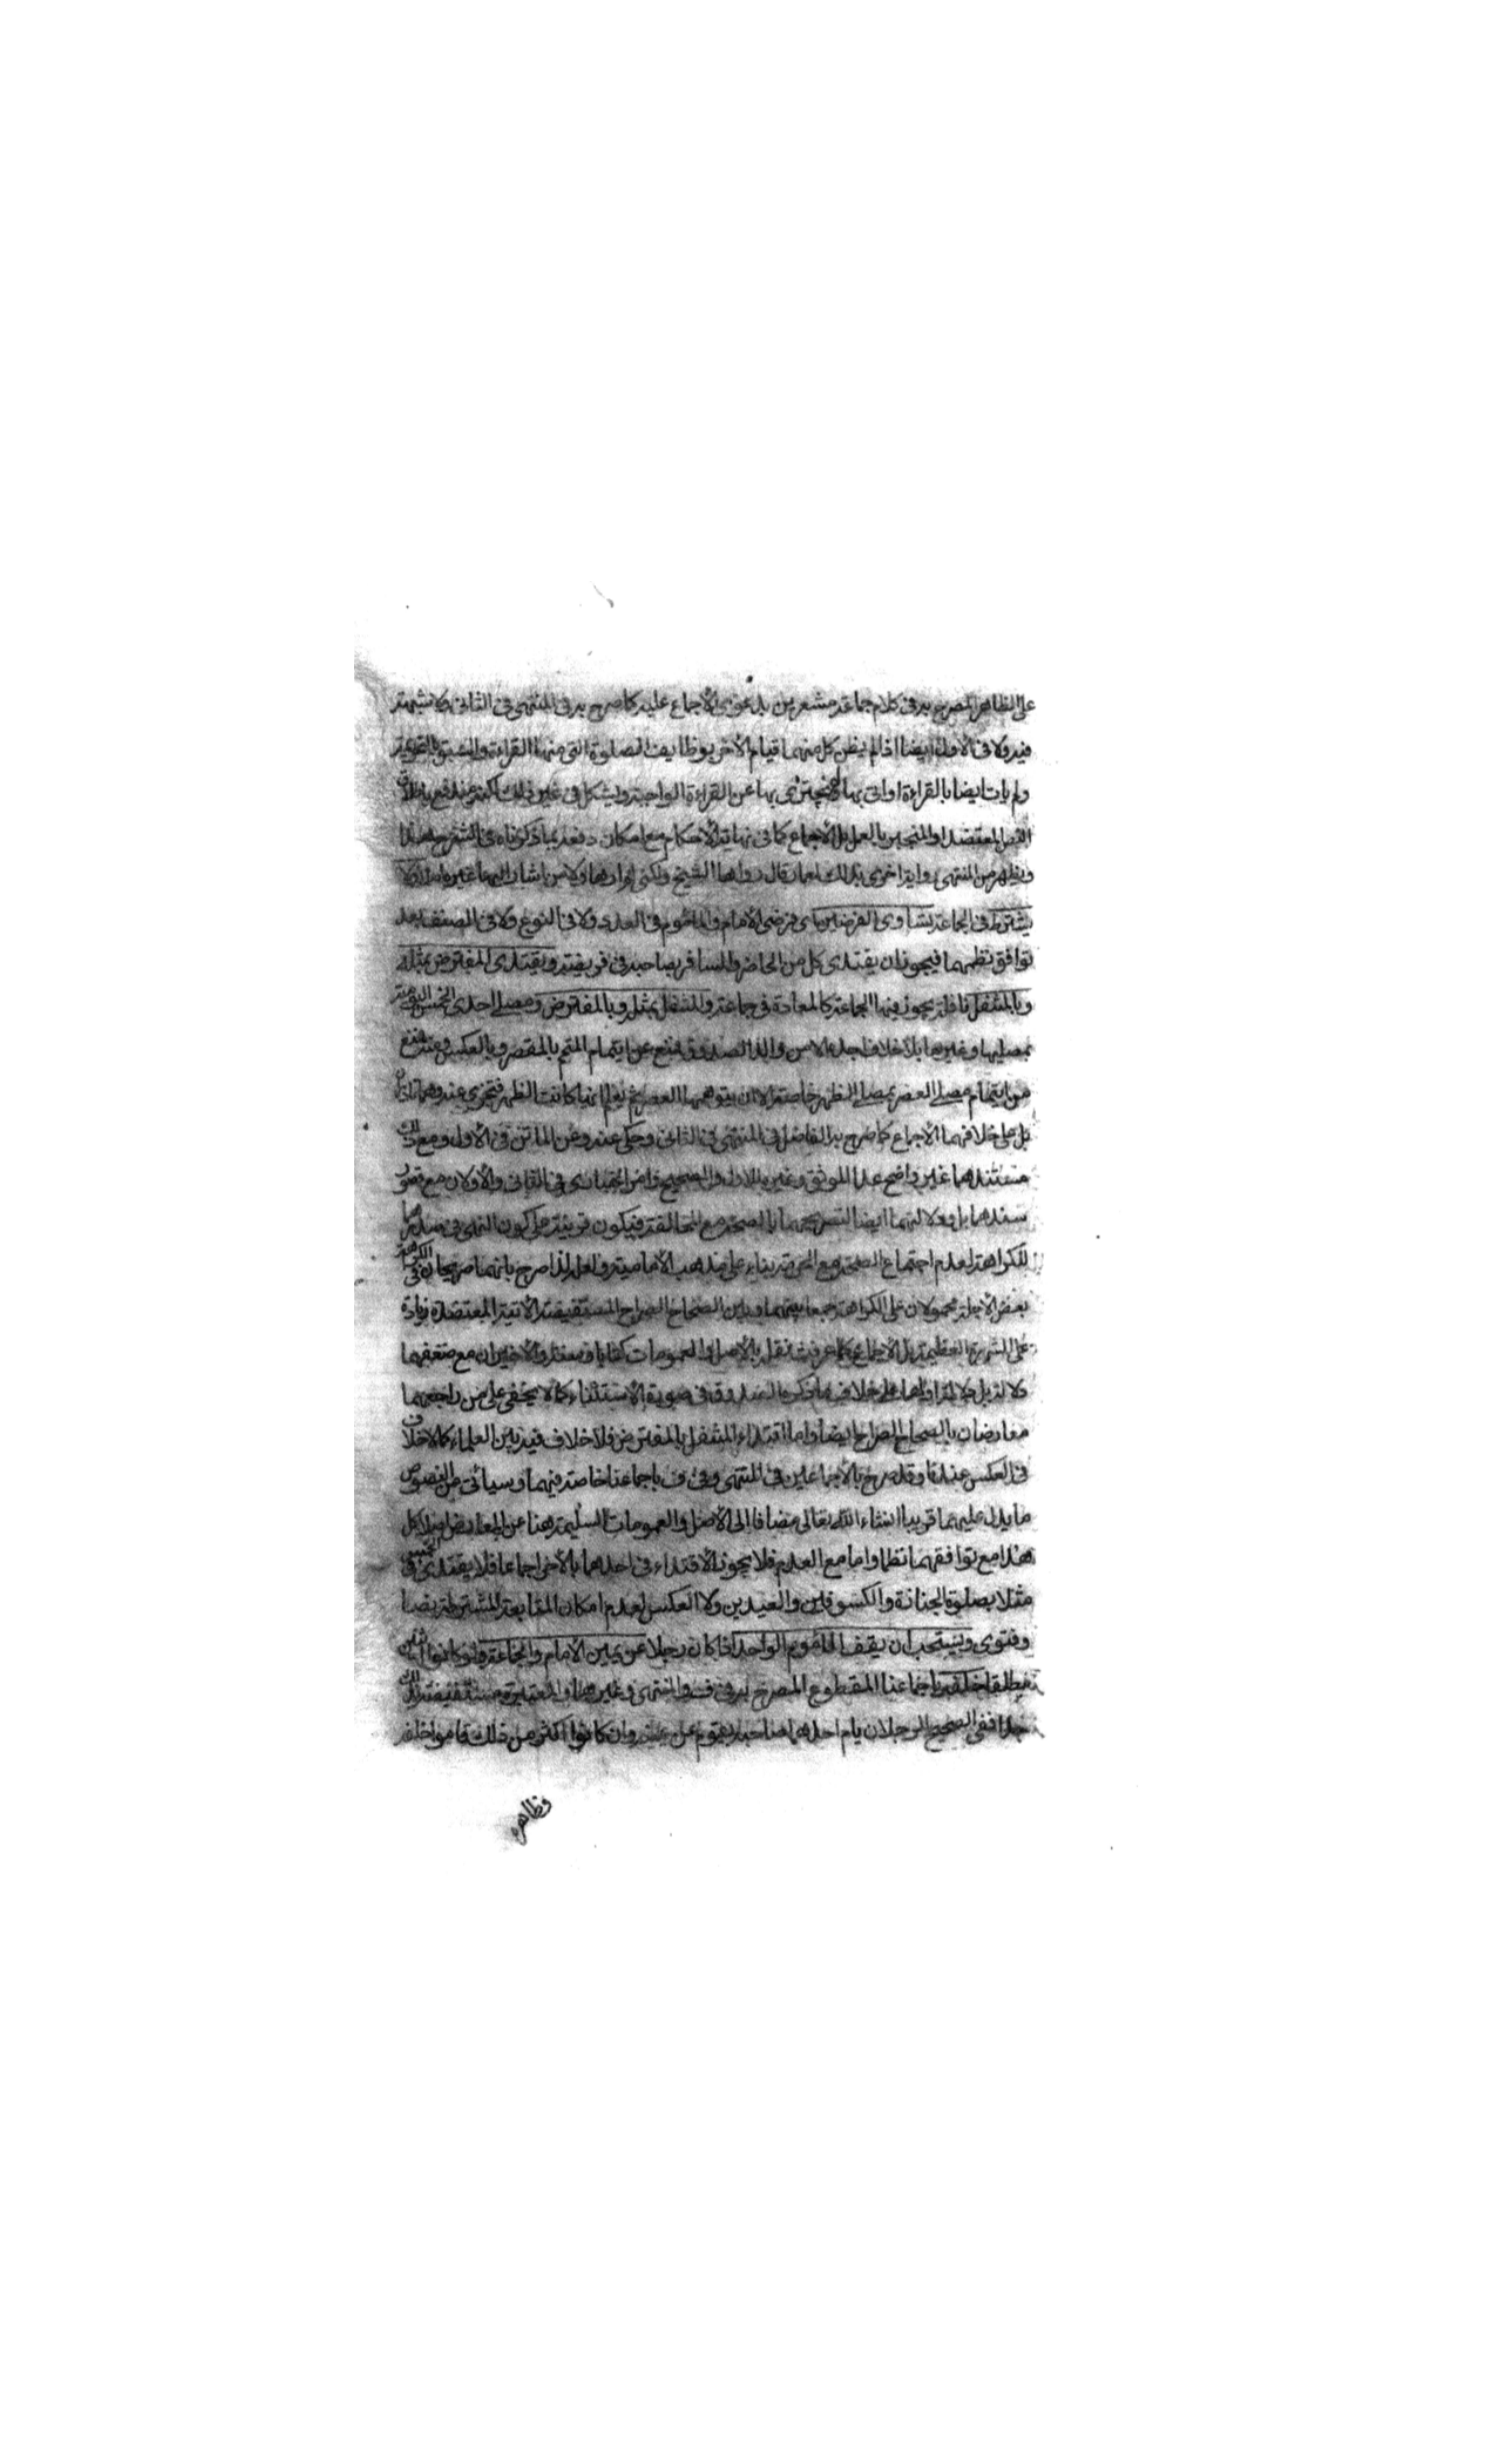 على الظاهر المصرح به فى كلام جماعة مشعرين بدعوى الاجماع عليه كما صرح به فى المنتهى فى الثانى ولا شبهة
فيه ولا فى الاول ايضا اذا لم يظن كل منهما قيام الاخر بوظايف الصلوة التى منها القراءة
ولم يات ايضا بالقراءة او اتى بها عن القراءة الواجبة ويشكل فى غير ذلك
النص المعتضد او المنجبر بالعمل بل الاجماع كما فى نهاية الاحكام مع امكان دفعه بما ذكرناه فى الشرح هذا
ويظهر من المنتهى رواية اخرى بذلك قال رواها الشيخ ولكنى لم ارها ولا من اشار اليها غيره ولا
يشترط فى الجماعة تساوى الفرضين اى فرضى الامام والماموم فى العدد ولا فى النوع ولا فى الصنف بعد
توافق نظمهما فيجوز ان يقتدى كل من الحاضر والمسافر بصاحبه فى فريضته ويقتدى المفترض بمثله
وبالمتنفل نافلة يجوز فيها الجماعة كالمعادة فى جماعة والمتنفل بمثله وبالمفترض ومصلى احدى الخمس اليومية
بمصليها وغيرها بلا خلاف اجده الا من والد الصدوق فمنع عن ايتمام المتم بالمقصر وبالعكس وعنه فمنع
من ايتمام مصلى العصر بمصلى الظهر خاصة الا ان يتوهمها العصر ثم يعلم انها كانت الظهر فتجزى عنه وهما
بل على خلافهما الاجماع كما صرح به الفاضل فى المنتهى فى الثانى وحكى عنه وعن الماتن فى الاول ومع ذلك
مستندهما غير واضح عدا الموثق وغيره للاول والصحيح فى الثانى والاولان مع قصور
سندهما بل ودلالتهما ايضا لتصريحهما بالصحة مع المخالفة فيكون قرينة على كون النهى فى صدرهما
للكراهة لعدم اجتماع الصحة مع الحرمة بناء على مذهب الامامية ولعله لذا صرح بانهما صريحان فى الكراهة
بعض الاجلة محمولان على الكراهة جمعا بينهما وبين الصحاح الصراح المستفيضة الاتية المعتضدة زيادة
على الشهرة العظيمة بل الاجماع كما عرفت نقله بالاصل والعمومات كتابا وسنة والاخيران مع ضعفهما
دلالة بل دلالة اولهما على خلاف ما ذكره الصدوق فى صورة الاستثناء كما لا يخفى على من راجعهما
معارضان بالصحاح الصراح ايضا واما اقتداء المتنفل بالمفترض فلا خلاف فيه بين العلماء كما لا خلاف
فى العكس عندنا وقد صرح بالاجماعين فى المنتهى وفى ف باجماعنا خاصة فيهما وسيأتى من النصوص
ما يدل عليهما قريبا انشاء الله تعالى مضافا الى الاصل والعمومات السليمة هنا عن المعارض اصلا كل
هذا مع توافقهما نظما واما مع العدم فلا يجوز الاقتداء فى احدهما بالاخر اجماعا فلا يقتدى فى الخمس
مثلا بصلوة الجنازة والكسوفين والعيدين ولا العكس لعدم امكان المتابعة المشترطة نصا
وفتوى ويستحب ان يقف الماموم الواحد اذا كان رجلا عن يمين الامام والجماعة ولو كانوا اثنين
مطلقا خلفه باجماعنا المقطوع المصرح به فى ف والمنتهى وغيرهما والمعتبرة مستفيضة بذلك
جدا ففى الصحيح الرجلان يام احدهما صاحبه يقوم عن يمينه وان كانوا اكثر من ذلك قاموا خلفه
وظاهره